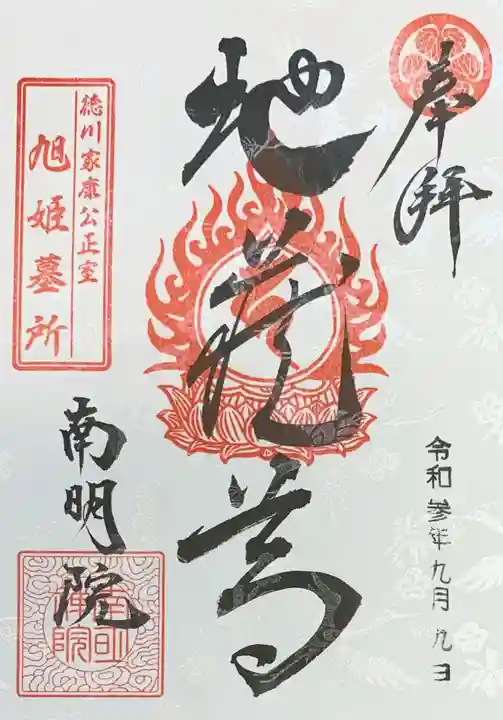 奉拝
地蔵尊
徳川家康公正室
旭姫墓所
南明院
令和参年九月九日
南明禅院